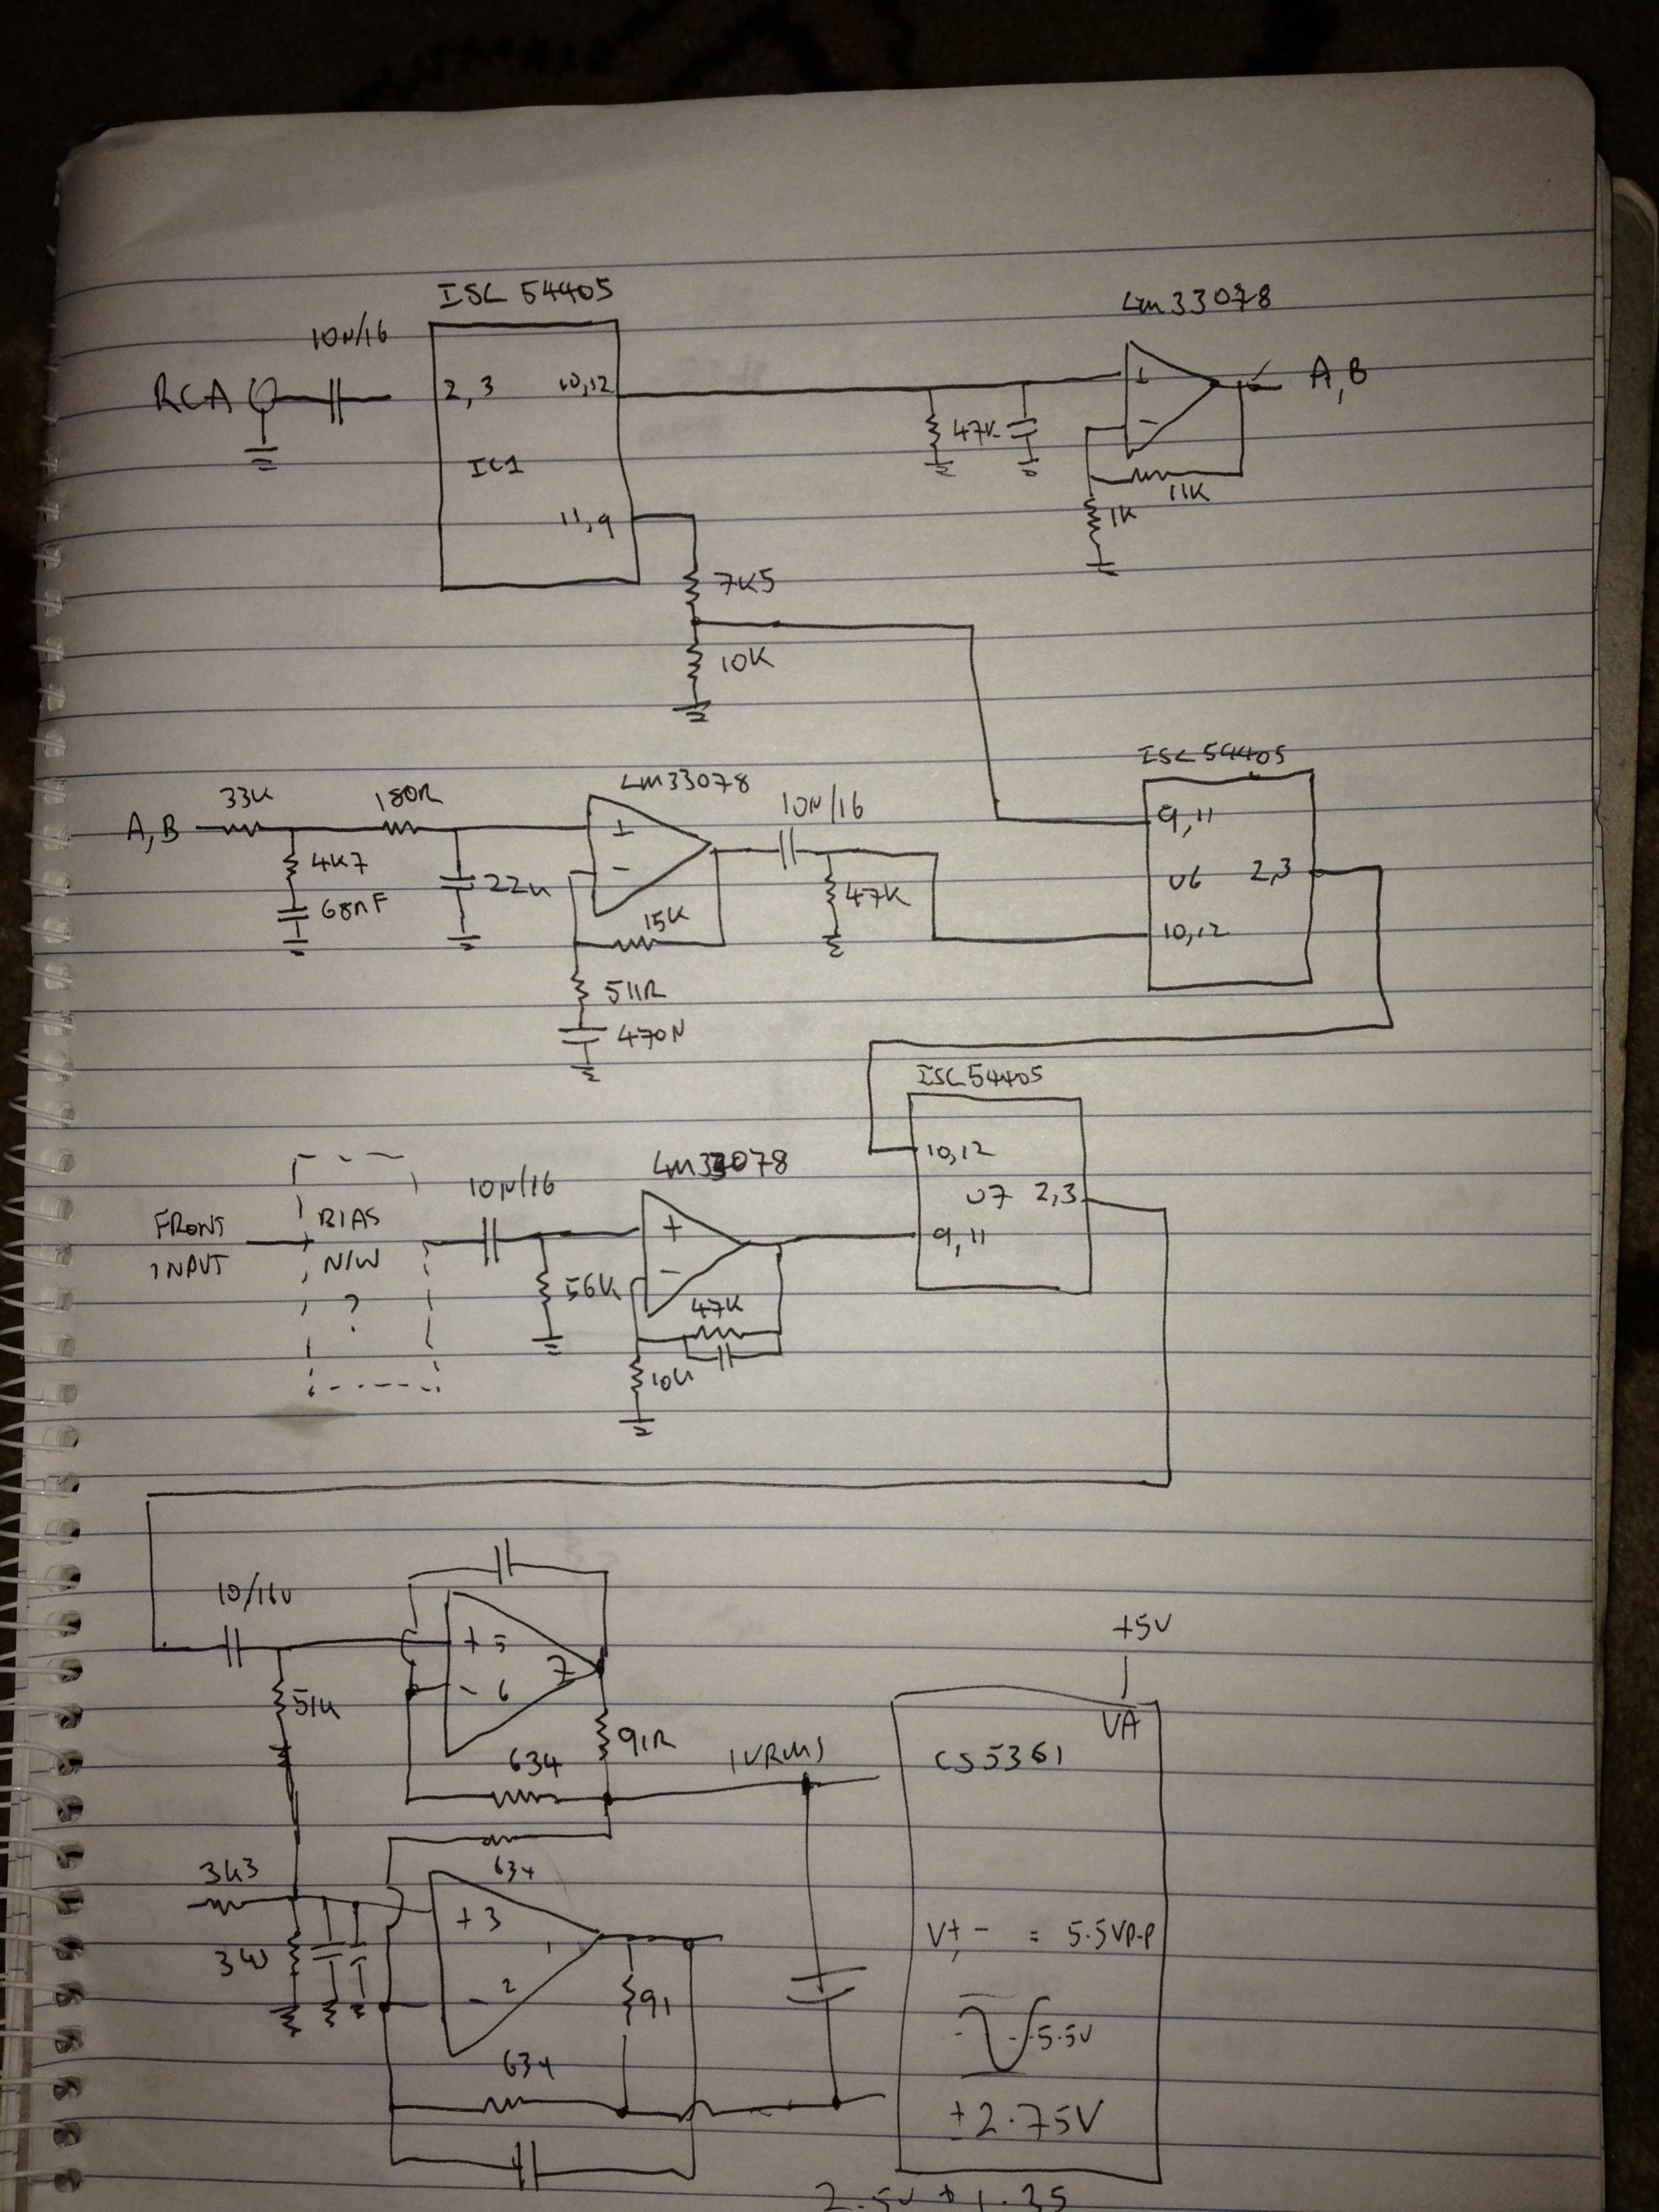 ISL 54405
LM33078
10N/16
RCA
2, 3
10,12
+
A,B
47K
-
IC1
11K
11,9
1K
7K5
10K
ISL 54405
LM33078
33K
180R
10N/16
A,B
+
9,11
4K7
-
22n
U6
2,3
68nF
15K
47K
10,12
511R
470N
ISL54405
10,12
LM33078
10N/16
U7
2,3
FRONT
INPUT
BIAS
N/W
?
+
9,11
-
56K
47K
10K
10/16V
+5V
+ 5
7
- 6
51K
VA
91R
1VRMS
CS5361
634
634
3K3
+ 3
1
V+,- = 5.5VP-P
- 2
91
5.5V
634
±2.75V